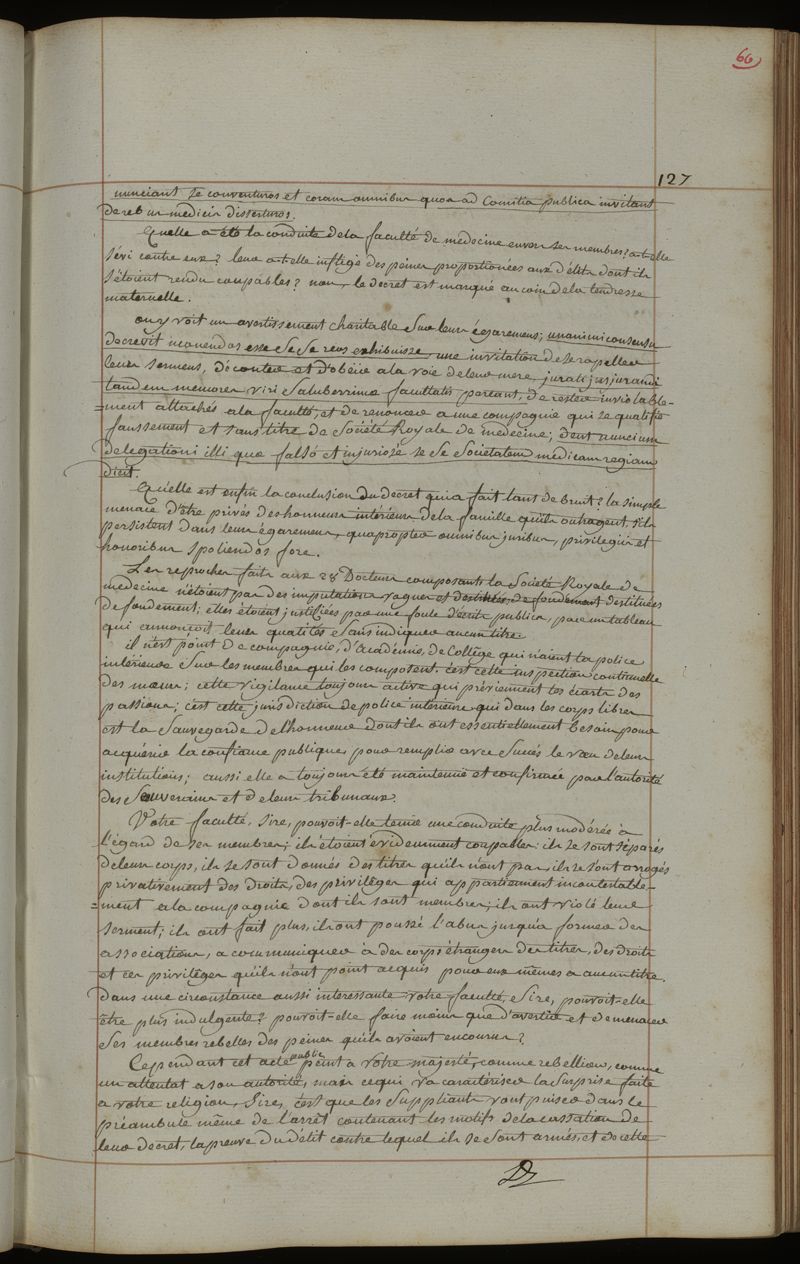 66
127
nunciant se conventuros et coram omnibus quos ad Comitia publica invitant
de rebus medicis disserturos.
Quelle a été la conduite dela faculté de médecine envers ses membres? a-t-elle
sévi contre eux? leur a-t-elle infligé des peines proportionées aux délits dont ils
s'étoient rendu coupables? non, le decret est marqué au coin dela tendresse
maternelle.
on y voit un avertissement charitable sur leurs égaremens; unanimi consensu
decrevit monendos esse se se reos exhibuisse, une invitation de se rapeller
leurs serments, d'écouter et d'obéir a la voie de leur mere, jurati jusjurandi
tandem memores viri saluberrimæ facultatis pareant, de rester inviolable-
=ment attachés a la faculté, et de renoncer a une compagnie qui se qualifie
faussement et sans titre de Société Royale de médecine; dent nuncium
delegationi illi quæ falsó et injuriosé se se Societatem medicam regiam
dicit.
Quelle est enfin la conclusion du decret qui a fait tant de bruit? la simple
menace d'être privés des honneurs intérieurs dela famille qu'ils outragent, s'ils
persistent dans leurs égaremens, quapropter omnibus juribus, privilegiis et
honoribus spoliendos fore.
Les reproches faits aux 28 Docteurs composants la Société Royale de
médecine n'étoient pas des imputations vagues et destituées de fondement destituées
de fondement; elles étoient justifiées par une foule d'écrits publics, par un tableau
qui annonçoit leurs qualités sans indiquer aucun titre.
il n'est point de compagnie, d'académie, de Collège qui n'aient la police
intérieure sur les membres qui les composent. c'est cette inspection continuelle
des mœurs; cette vigilance toujours active qui préviennent les écarts des
passions; c'est cette jurisdiction de police intérieure qui dans les corps libres
est la sauvegarde del'honneur dont ils ont essentiellement besoin pour
acquérir la confiance publique, pour remplir avec succés le vœu de leurs
institutions; aussi elle a toujours été maintenue et confirmée par l'autorité
des Souverains et de leurs tribunaux.
Votre faculté, Sire, pouvoit-elle tenir une conduite plus modérée à
l'égard de ses membres; ils étoient évidemment coupables: ils se sont séparés
de leur corps, ils se sont donnés des titres qu'ils n'ont pas, ils se sont arrogés
privativement des droits, des privilèges qui appartiennent incontestable-
=ment a la compagnie dont ils sont membres; ils ont violé leurs
serment; ils ont fait plus, ils ont poussé l'abus jusqu'a former des
associations, a communiquer à des corps étrangers des titres, des droits
et ces privilèges qu'ils n'ont point acquis pour eux mêmes a aucun titre.
Dans une circonstance aussi interessante votre faculté, Sire, pouvoit-elle
être plus indulgente? pouvoit-elle faire moins que d'avertir et de menacer
ses membres rebelles des peines qu'ils avoient encourues?
Cependant cet acte public peint a votre majesté, comme rebellion, comme
un attentat a son autorité, mais ce qui va caractériser la surprise faite
a votre religion, Sire, c'est que les Suppliants vont puiser dans le
préambule même de l'arrêt contenant les motifs dela cassation de
leur decret, la preuve du délit contre lequel ils se sont armés, et de cette